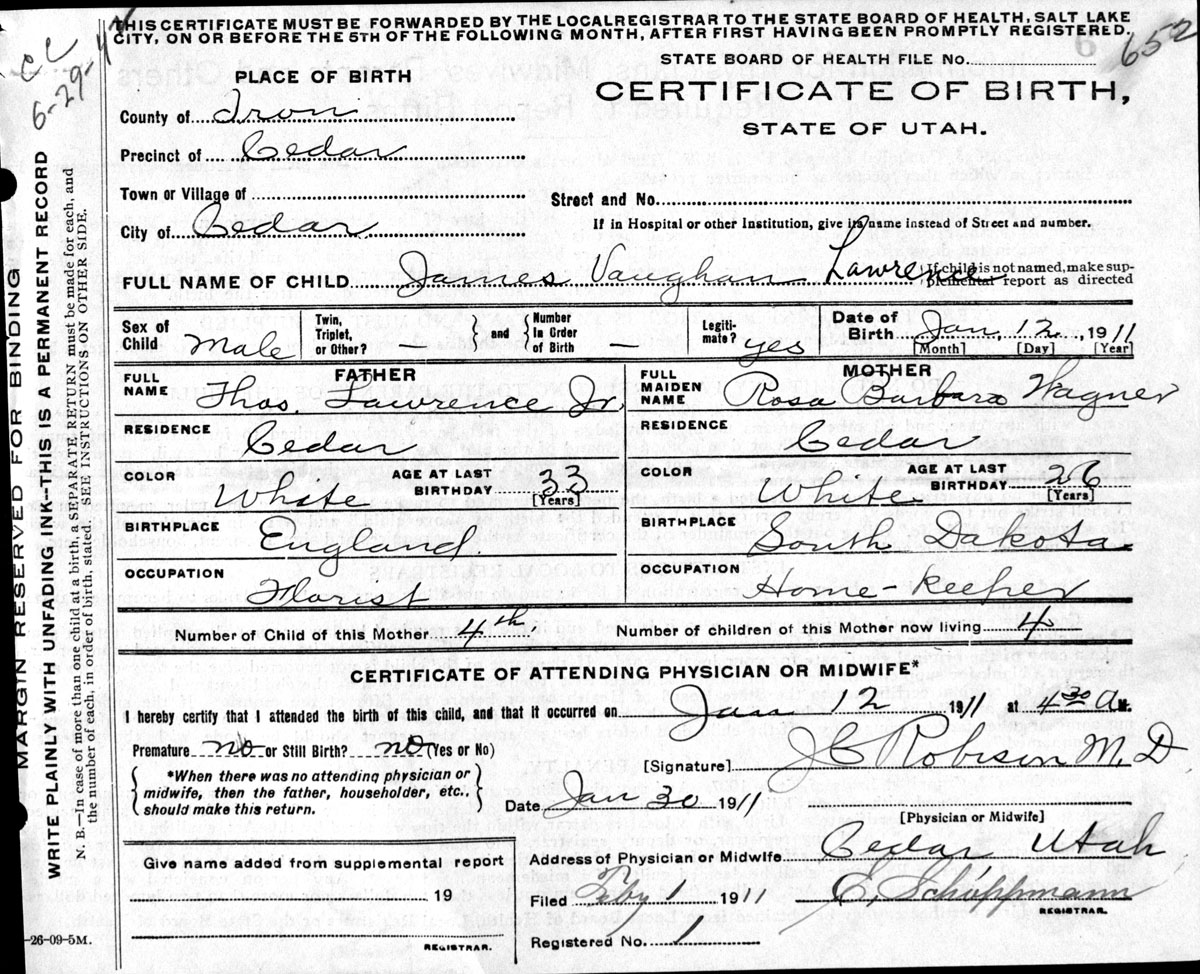 THIS CERTIFICATE MUST BE FORWARDED BY THE LOCAL REGISTRAR TO THE STATE BOARD OF HEALTH, SALT LAKE
CITY, ON OR BEFORE THE 5TH OF THE FOLLOWING MONTH, AFTER FIRST HAVING BEEN PROMPTLY REGISTERED.
652
6-29-
STATE BOARD OF HEALTH FILE No.
PLACE OF BIRTH
CERTIFICATE OF BIRTH,
STATE OF UTAH.
County of Iron
Precinct of Cedar
Town or Village of
Street and No.
City of Cedar
If in Hospital or other Institution, give its name instead of Street and number.
FULL NAME OF CHILD James Vaughan Lawrence
If child is not named, make sup-
plemental report as directed
Sex of Child Male
Twin, Triplet, or Other? —
and
Number In Order of Birth —
Legiti-mate? yes
Date of Birth Jan, 12. 1911
[Month] [Day] [Year]
FATHER
FULL NAME Thos. Lawrence Jr.
RESIDENCE Cedar
COLOR White
AGE AT LAST BIRTHDAY 33
[Years]
BIRTHPLACE England.
OCCUPATION Florist
MOTHER
FULL MAIDEN NAME Rosa Barbara Wagner
RESIDENCE Cedar
COLOR White
AGE AT LAST BIRTHDAY 26
[Years]
BIRTHPLACE South Dakota.
OCCUPATION Home-keeper
Number of Child of this Mother 4th
Number of children of this Mother now living 4
CERTIFICATE OF ATTENDING PHYSICIAN OR MIDWIFE*
I hereby certify that I attended the birth of this child, and that it occurred on Jan 12 1911 at 4 30 A M.
Premature no or Still Birth? no (Yes or No)
*When there was no attending physician or
midwife, then the father, householder, etc.,
should make this return.
[Signature] J C Robison M. D
Date Jan 30 1911
[Physician or Midwife]
Give name added from supplemental report
19
REGISTRAR.
Address of Physician or Midwife Cedar Utah
Filed Feby 1 1911 E. Schoppmann
REGISTRAR.
Registered No. 1
MARGIN RESERVED FOR BINDING
WRITE PLAINLY WITH UNFADING INK--THIS IS A PERMANENT RECORD
N. B.—In case of more than one child at a birth, a SEPARATE RETURN must be made for each, and
the number of each, in order of birth, stated. SEE INSTRUCTIONS ON OTHER SIDE.
-26-09-5M.